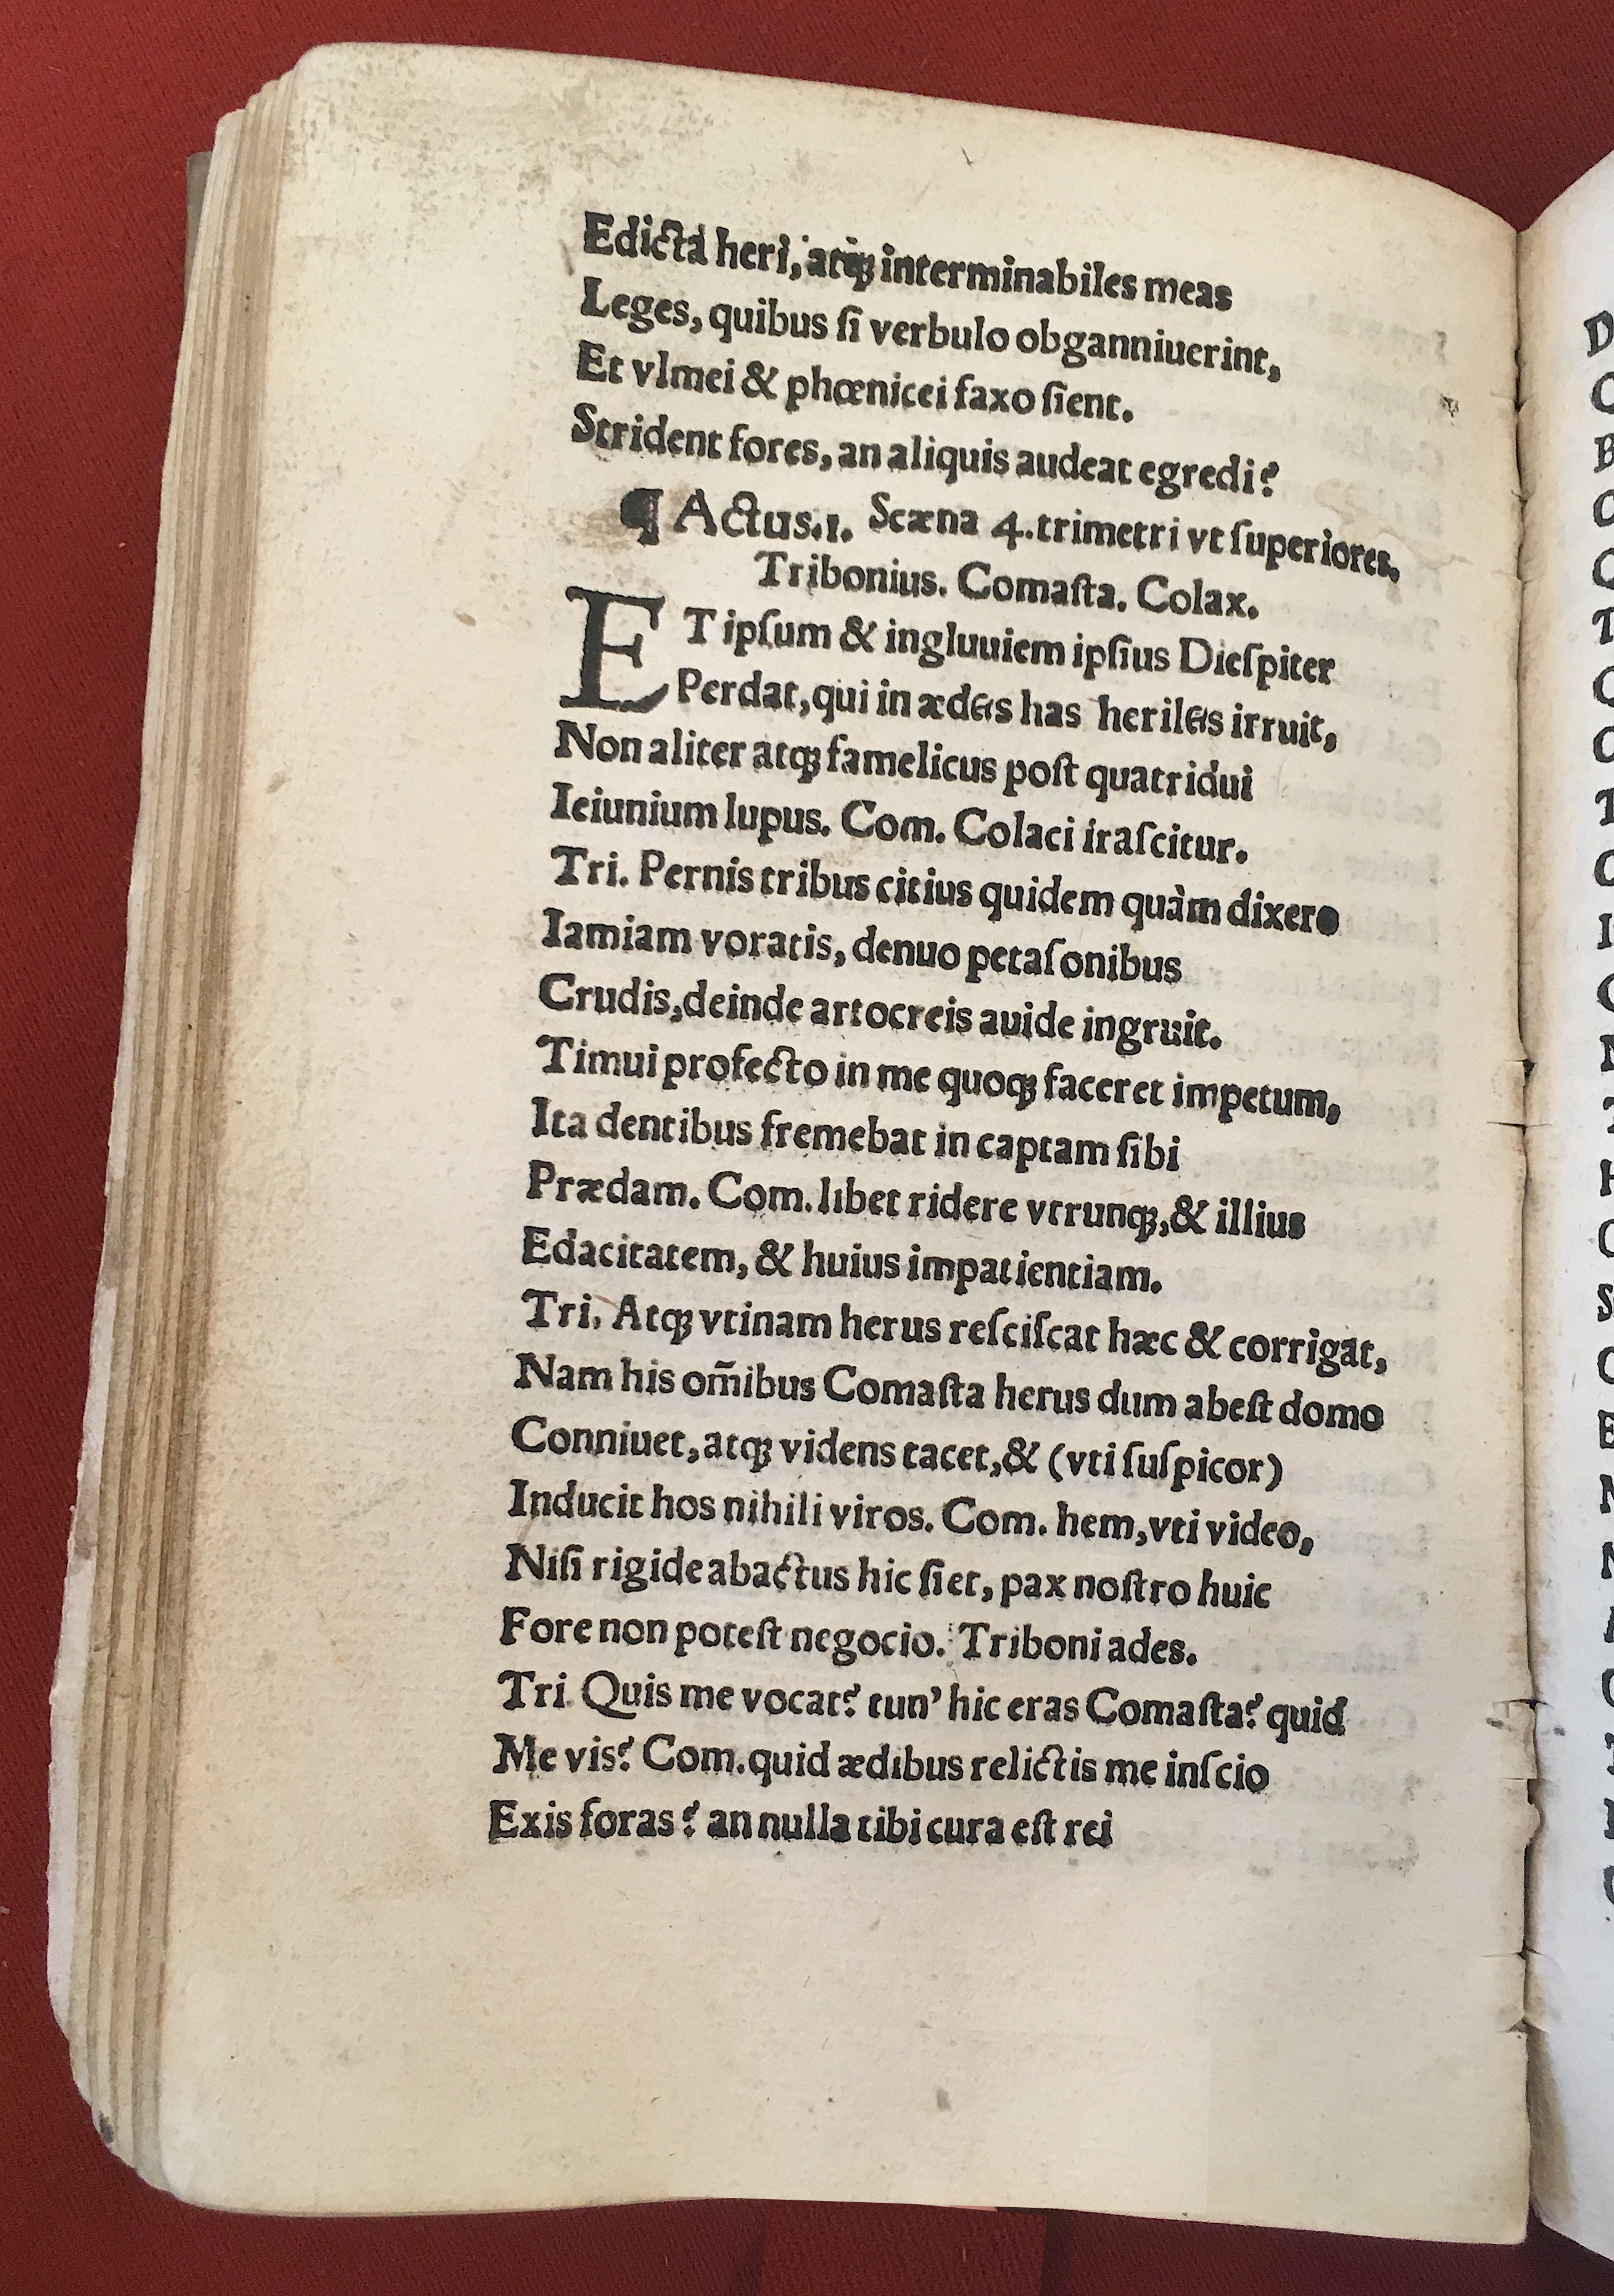 Edicta heri, atqꝫ interminabiles meas
Leges, quibus ſi verbulo obganniuerint,
Et vlmei & phœnicei faxo ſient.
Strident fores, an aliquis audeat egredi?
¶ Actus.1. Scæna 4.trimetri vt ſuperiores.
Tribonius. Comaſta. Colax.
ET ipſum & ingluuiem ipſius Dieſpiter
Perdat, qui in ædeis has herileis irruit,
Non aliter atqꝫ famelicus poſt quatridui
Ieiunium lupus. Com. Colaci iraſcitur.
Tri. Pernis tribus citius quidem quàm dixero
Iamiam voratis, denuo petaſonibus
Crudis,deinde artocreis auide ingruit.
Timui profecto in me quoqꝫ faceret impetum,
Ita dentibus fremebat in captam ſibi
Prædam. Com. libet ridere vtrunqꝫ,& illius
Edacitatem, & huius impatientiam.
Tri. Atqꝫ vtinam herus reſciſcat hæc & corrigat,
Nam his om̃ibus Comaſta herus dum abeſt domo
Conniuet, atqꝫ videns tacet,& (vti ſuſpicor)
Inducit hos nihili viros. Com. hem,vti video,
Niſi rigide abactus hic ſiet, pax noſtro huic
Fore non poteſt negocio. Triboni ades.
Tri. Quis me vocat? tun' hic eras Comaſta? quid
Me vis? Com. quid ædibus relictis me inſcio
Exis foras? an nulla tibi cura eſt rei